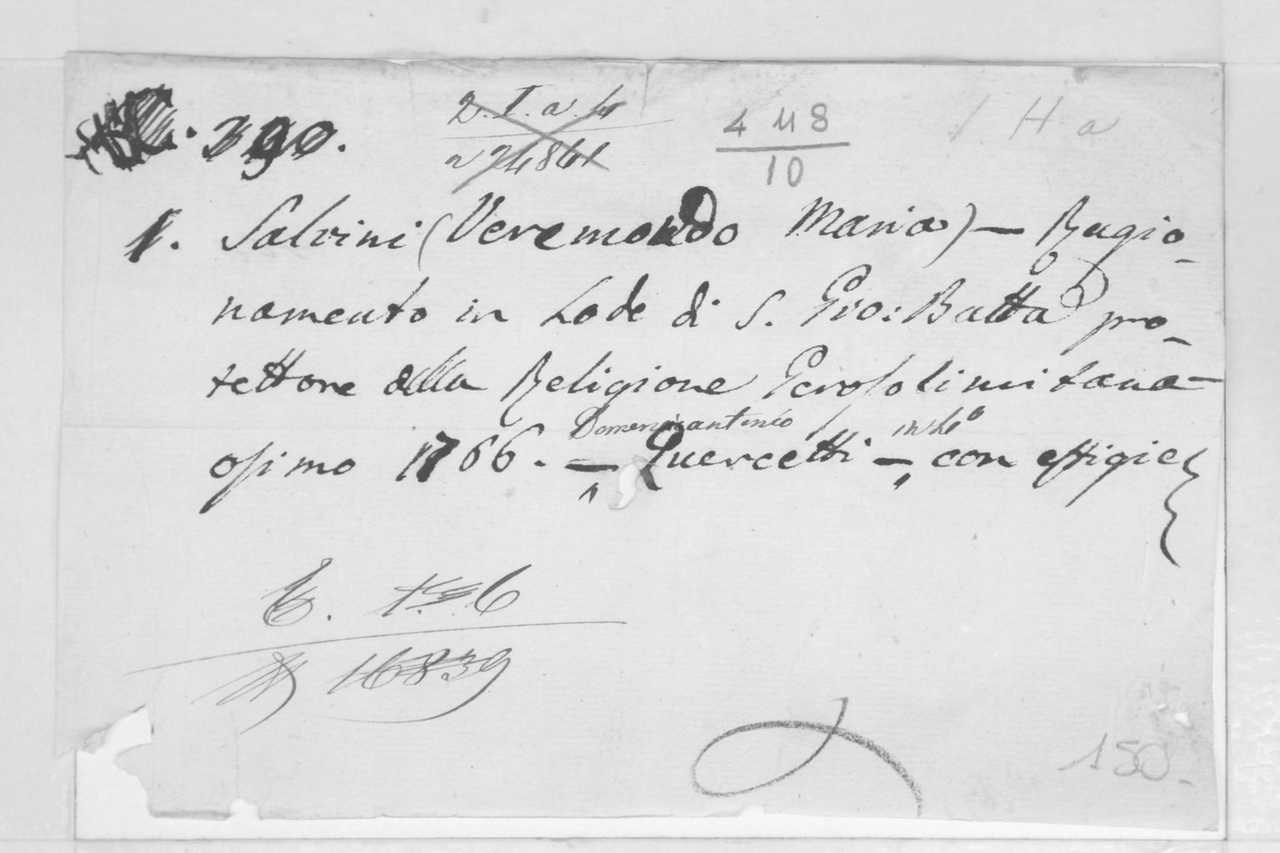 390.
2. I. a. 4
448
10
H a
1. Salvini (Veremondo Maria) — Ragio-
namento in Lode di S. Gio: Batta pro-
tettore della Religione Gerosolimitana —
osimo 1766. — Domenicantonio Quercetti — in 4o con effigie
16839
150.